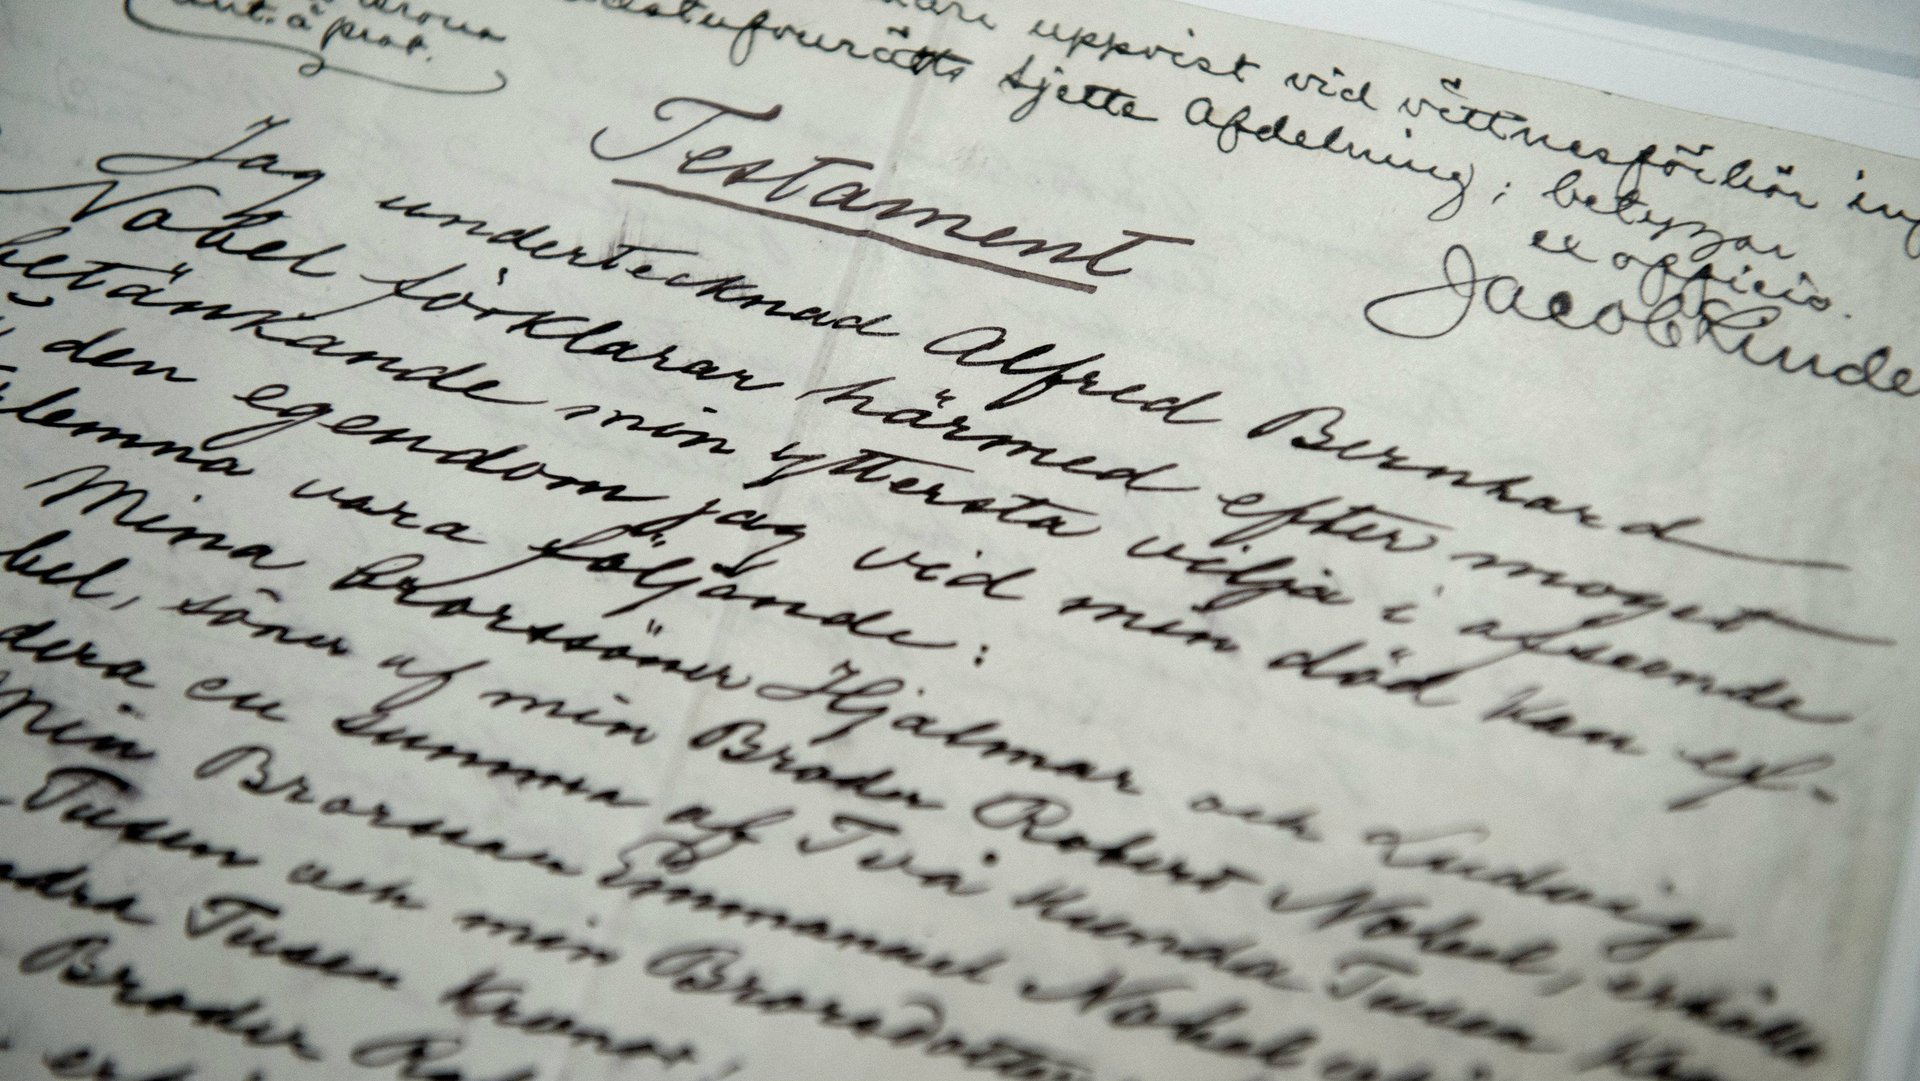 uppvist vid vittnesförhör
sjette Afdelning; betygar
ant. à prot.
ex officio.
Jacob Linde
Testament
Jag undertecknad Alfred Bernhard
Nobel förklarar härmed efter moget
betänkande min yttersta vilja i afseende
den egendom jag vid min död kan ef-
lemna vara följande:
Mina brorssöner Hjalmar och Ludvig
bel, söner af min Broder Robert Nobel, erhålla
dera en summa af Två Hundra Tusen
Min Brorson Emmanuel Nobel
Tusen och min Brorsdotter
Tusen Kronor;
Broder